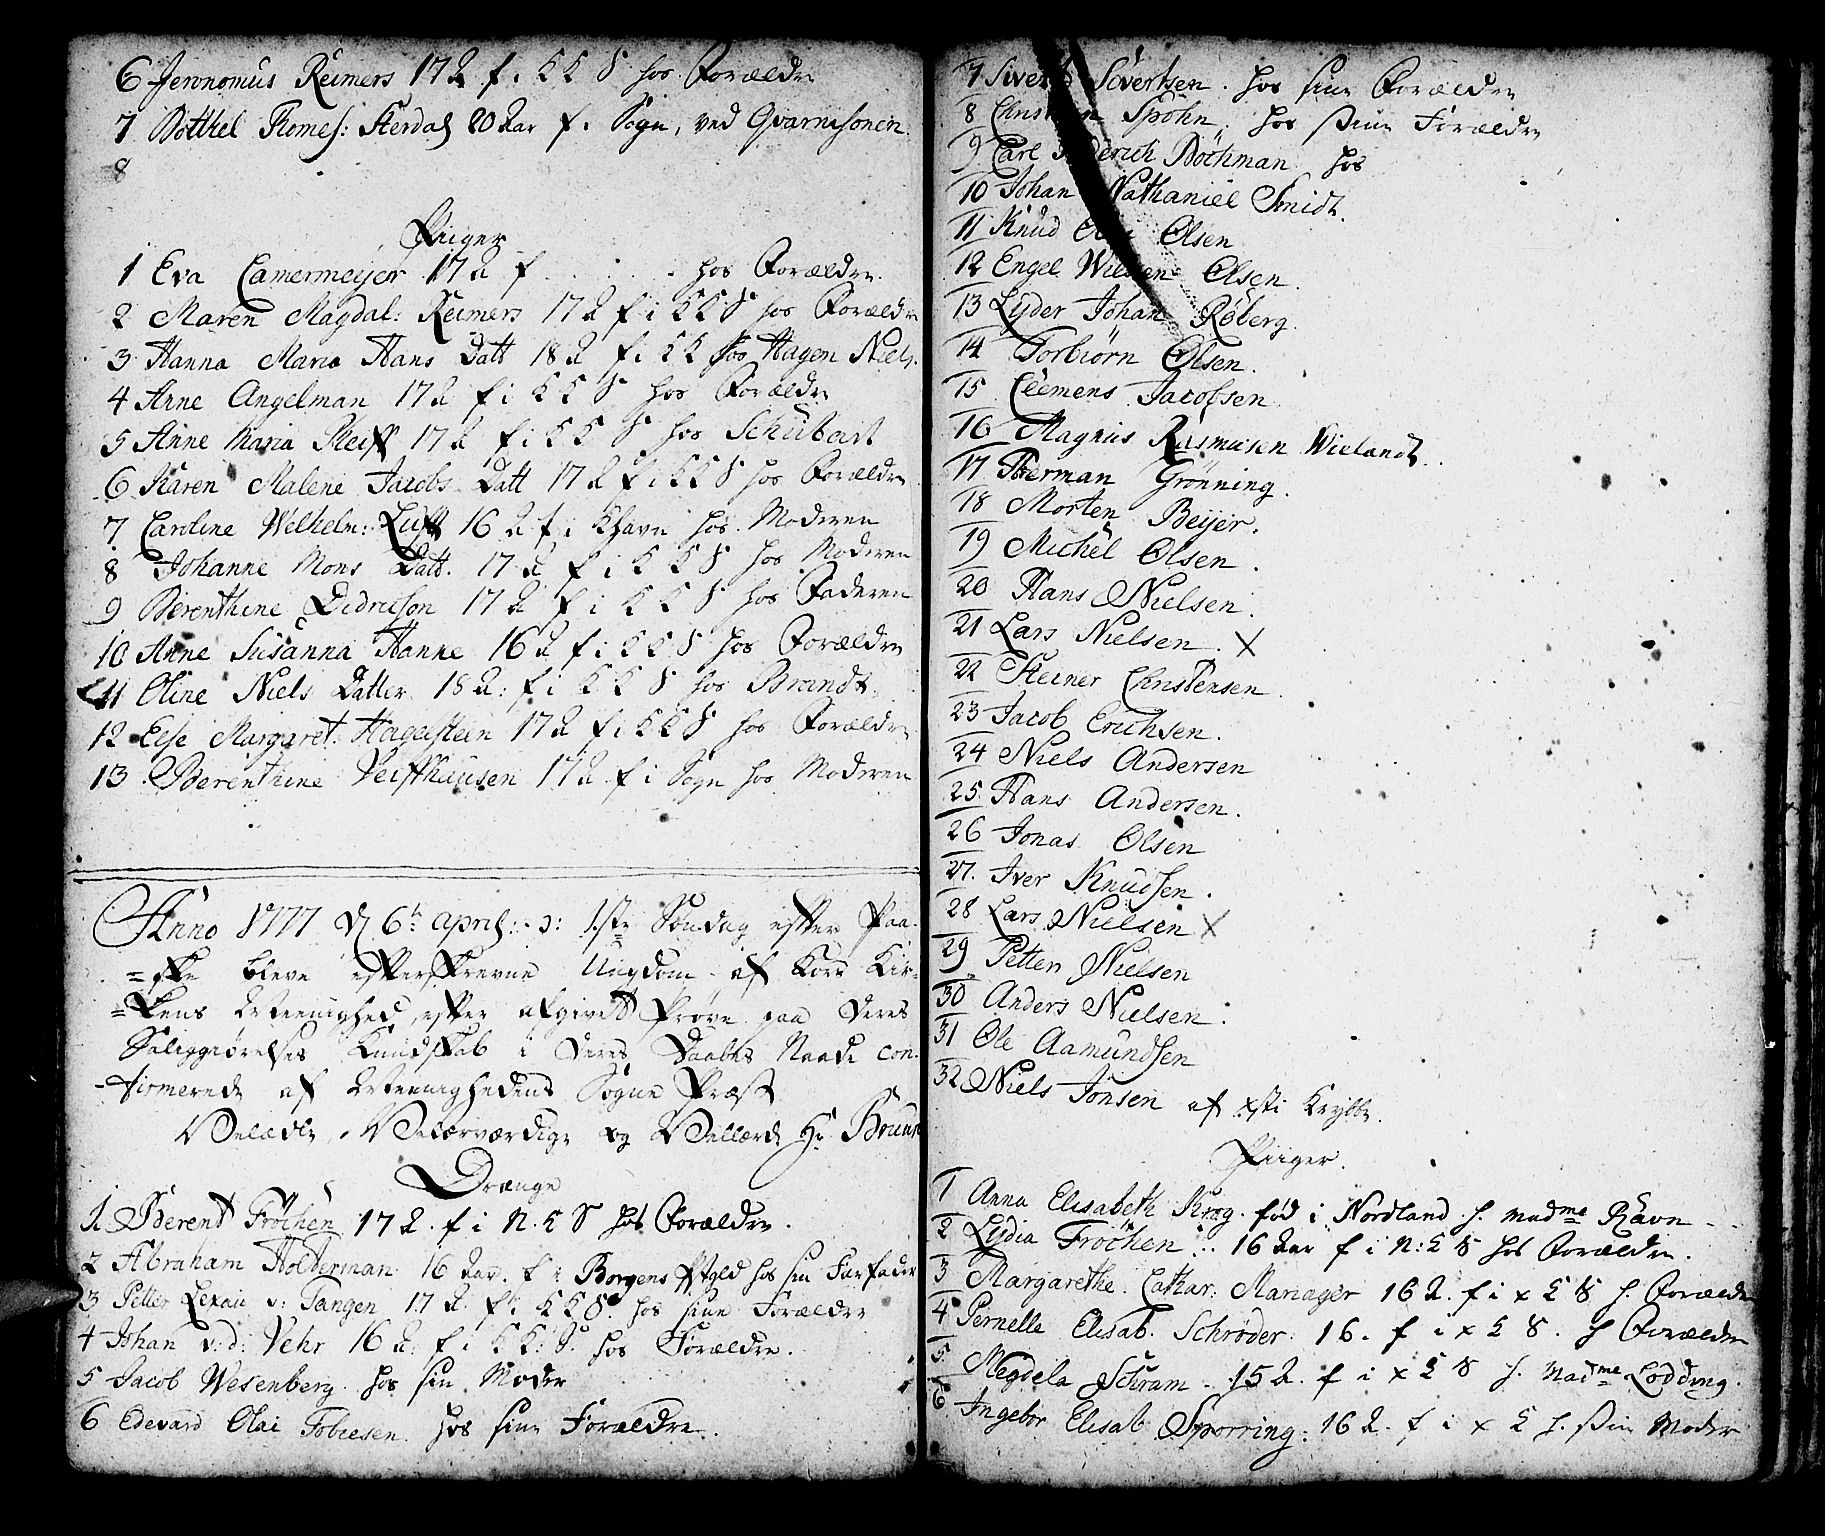 6 Jeronomus Reimers 17 A f i K K S hos Forældre
7 Botthel Thomes: Sterdal 20 Aar f. i Sogn, ved Gvarnisonen
8
Piiger
1 Eva Camermeijer 17 A f . . . . hos Forældre
2 Maren Magdal: Reimers 17 A f i K K S hos Forældre
3 Hanna Maria Hans Datt 18 A f i K K hos Hagen Niels.
4 Anne Angelman 17 A f i K K S hos Forældre
5 Anne Maria 17 A f i K K S hos Schubart
6 Karen Malene Jacobs Datt 17 A f i K K S hos Forældre
7 Caroline Welhelm: 16 A f i Khavn hos Moderen
8 Johanne Mons Datt. 17 A f i K K S hos Moderen
9 Berenthine Didricson 17 A f i K K S hos Faderen
10 Anne Susanna Hanne 16 A f i K K S hos Forældre
11 Oline Niels Datter 18 A: f i K K S hos Brandt.
12 Else Margaret: Hagelsteen 17 A f i K K S hos Forældre
13 Berenthine Veiffhausen 17 A f i Sogn hos Moderen
Anno 1777 d 6te April: o: 1ste Søndag efter Paa-
=ske bleve efterskrevne Ungdom af Kors Kir-
=kens Meenighed, efter afgivet Prøve paa deres
Saliggiørelses Kundskab i deres Daabes Naade con-
-firmerede af Meenighedens Sogne Præst
Velædle, Velærværdige og Vellærde Hr Bruun
Drænge
1 Berent Fröchen 17 A. f i N. K S hos Forældre.
2 Abraham Holderman 16 Aar. f i Borgens hos sin Farfader
3 Petter v: Tangen 17 A. f i K K S. hos sine Forældre
4 Johan v: d: Vehr 16 A: f i K K: S. hos Forældre.
5 Jacob Wesenberg hos sin Moder
6 Edevard Olai Tobiesen hos sine Forældre.
7 Sivert Sivertsen. hos sine Forældre
8 Spöhn. hos sine Forældre
9 Carl Böchman hos
10 Johan Nathaniel Smidt.
11 Knud Olsen
12 Engel Olsen.
13 Lyder Johan Röberg.
14 Torbiørn Olsen.
15 Clemens Jacobsen
16 Magnus Rasmusen Wielandt.
17 Herman Grönning.
18 Morten Beyer.
19 Michel Olsen.
20 Hans Nielsen.
21 Lars Nielsen. X
22 Steiner Christensen.
23 Jacob Erichsen.
24 Niels Andersen
25 Hans Andersen.
26 Jonas Olsen
27. Iver Knudsen.
28 Lars Nielsen X
29 Petter Nielsen
30 Anders Nielsen.
31 Ole Aamundsen
32 Niels Jonsen af xsti Krybbe.
Piiger.
1 Anna Elisabeth Krog. fød i Nordland h. madme Ravn
2 Lydia Fröchen .. 16 Aar f i N: K S hos Forældre.
3 Margarethe Cathar: Mariager 16 A. f i x K S h. Forældre
4 Pernelle Elisab. Schrøder: 16. f i x K S. h Forældre
5. Megdela Schram. 15 A. f i x K S h. Madme Lodding.
6 Ingebor Elisab Sporring: 16 A. f i x K h. sin Moder